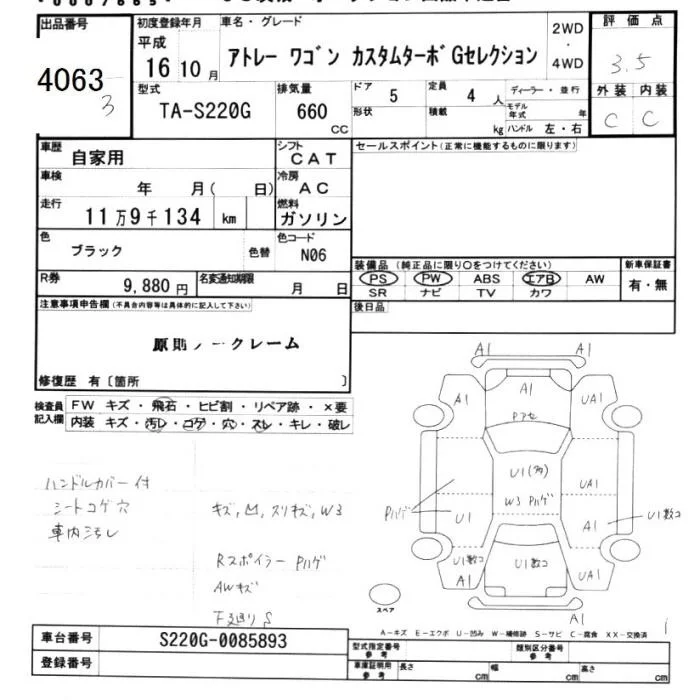 出品番号 初度登録年月 車名・グレード 2WD ・ 4WD 評価点
4063 3 平成 16年10月 アトレー ワゴン カスタムターボGセレクション 3.5
型式 排気量 ドア 5 定員 4人 ディーラー・並行 外装 内装
TA-S220G 660 CC 形状 積載 kg モデル年式 年 ハンドル 左・右 C C
車歴 自家用 シフト CAT セールスポイント(正常に機能するものに限ります)
車検 年 月( 日) 冷房 AC
走行 11万9千134 km 燃料 ガソリン
色 ブラック 色替 色コード N06
装備品 (純正品に限り○をつけてください) 新車保証書
R券 9,880円 名変通知期限 月 日 PS PW ABS エアB AW 有・無
SR ナビ TV カワ
注意事項申告欄(不具合内容等は具体的に記入して下さい) 後日品
原則ノークレーム
修復歴 有〔箇所 〕
検査員記入欄 FW キズ・飛石・ヒビ割・リペア跡・×要
内装 キズ・汚レ・コゲ・穴・スレ・キレ・破レ
A1 A1
A1 A1 UA1
Pアセ
ハンドルカバー付
シートコゲ穴
車内汚レ
キズ,凹,スリキズ,W3
Rスポイラー Pハゲ
AWキズ
下廻りS
U1(多)
W3 Pハゲ
Pハゲ U1 UA1
A1 U1数コ
U1数コ U1数コ
A1 UA1
A1
スペア
A-キズ E-エクボ U-凹み W-補修跡 S-サビ C-腐食 XX-交換済
車台番号 S220G-0085893 型式指定番号 参考 類別区分番号 参考
登録番号 車庫証明用 参考 長さ cm 幅 cm 高さ cm